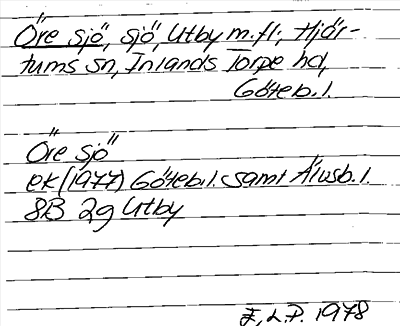 Öre sjö, sjö, Utby m.fl., Hjär-
tums sn, Inlands Torpe hd,
Göteb.l.
Öre sjö
ek (1977) Göteb.l. samt Älvsb.l.
8B 2g Utby
E.L.P. 1978